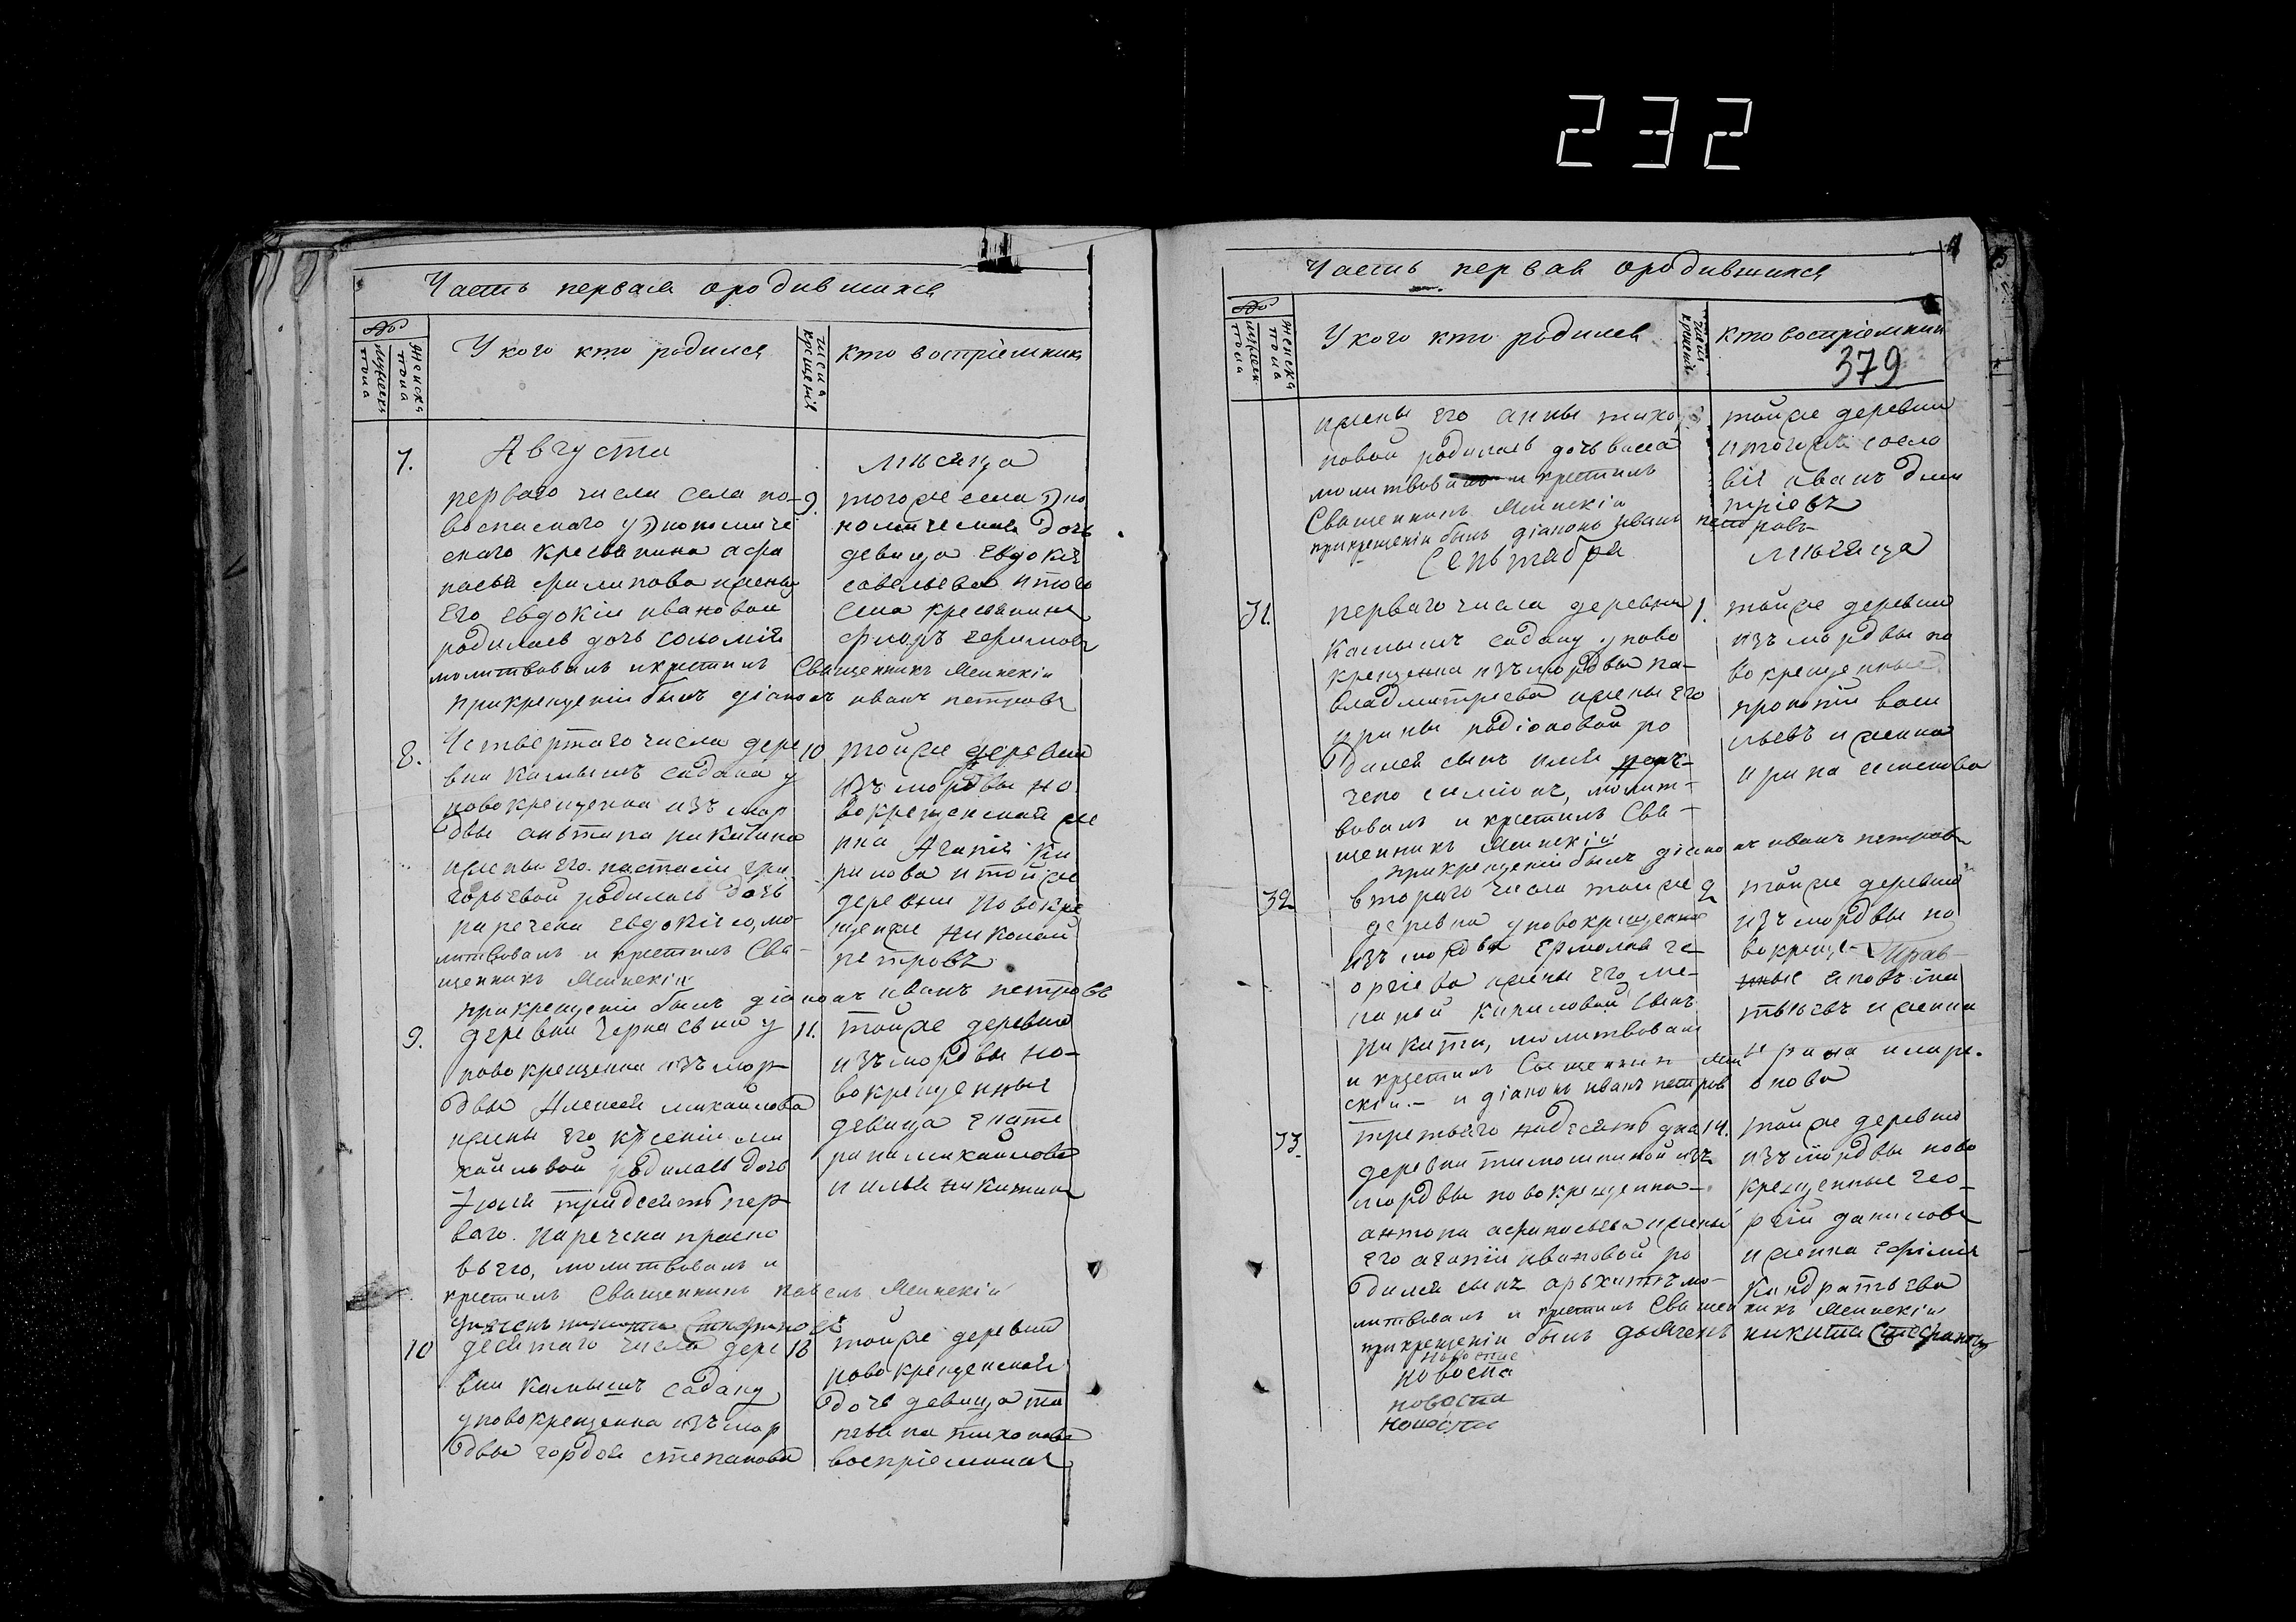 232
Часть первая ородившихся
№
мужеск пола
женска пола
У кого кто родился
числа крещенія
кто воспріемник
7.
Августа
месяца
перваго числа села но-
воспаскаго
скаго крестьянина афа
насья филипова жены
его евдокіи ивановой
родилась дочь соломія
молитвовалъ икрестил Священникъ Менскій
прикрещеніи былъ діаконъ иванъ петровъ
9.
тогоже села
дочь
девица евдокія
савельева итого
села крестьянинъ
ефимовъ
8.
Четвертаго числа дере
вни камышъ садака у
новокрещенна изъ мор
двы антипа никитина
жены его настасіи гри
горьевой родилась дочь
наречена евдокіею, мо-
литвовалъ и крестилъ Свя-
щенникъ Менскій
прикрещеніи былъ діаконъ иванъ петровъ
10
тойже деревни
изъ мордвы но
вокрещенская же
нка Агапія ки
рилова итойже
деревни новокре
щенже николай
петровъ
9.
деревни Чернаевки у
новокрещенна изъ мор
двы Алексея михайлова
жены его ксеніи ми
хайловой родилась дочь
Июля тридесять пер
ваго. наречена праско
вьею, молитвовалъ и
крестилъ Священникъ павелъ Менскій
дьячекъ никита Стефановъ
11.
тойже деревни
изъ мордвы но-
вокрещенные
девица екате
рина михайлова
и илья никитин
10
десятаго числа дере
вни камышъ садаку
уновокрещенна изъ мор
двы гордея степанова
18
тойже деревни
новокрещенская
дочь девица та
тьяна тихонова
воспріемникъ
Часть первая ородившихся
№
мужеск пола
женска пола
У кого кто родился
числа крещенія
кто воспріемники
379
жены его анны тихо
новой родилась дочь васса
молитвовалъ и крестилъ
Священникъ Менскій
прикрещеніи былъ діаконъ иванъ петровъ
тойже деревни
итогоже сосло
вія иванъ дми
тріевъ
Сеньтября
месяца
31.
перваго числа деревни
камышъ садаку уново
крещенна изъ мордвы па-
вла дмитрева жены его
ирины родіоновой ро
дился сынъ имя наре-
чено симіонъ, молит-
вовалъ и крестилъ Свя-
щенникъ Менскій
прикрещеніи былъ діаконъ иванъ петровъ
1.
тойже деревни
изъ мордвы но
вокрещенные
прокопій васи
льевъ и женка
ирина семенова
32
втораго числа тойже
деревни уновокрещенна
изъ мордвы Ермолая ге-
оргіева жены его ме-
ланьи кириловой сынъ
никита, молитвовалъ
и крестилъ Священник Мен
скій. - и діаконъ иванъ петров
2
тойже деревни
изъ мордвы но
вокреще-
ные
тьевъ и женка
иларі-
онова
33.
третьяго надесять дня
деревни тимошкиной изъ
мордвы новокрещенна-
антона афанасьева жены
его агапіи ивановой ро
дился сынъ архипъ мо-
литвовалъ и крестилъ Священникъ Менскій
прикрещеніи былъ дьячекъ никита Стефановъ
14.
тойже деревни
изъ мордвы ново
крещенные гео-
ргій данилов
и женка ефимія
Кондратьева
новоспас
новоспа
новоспа